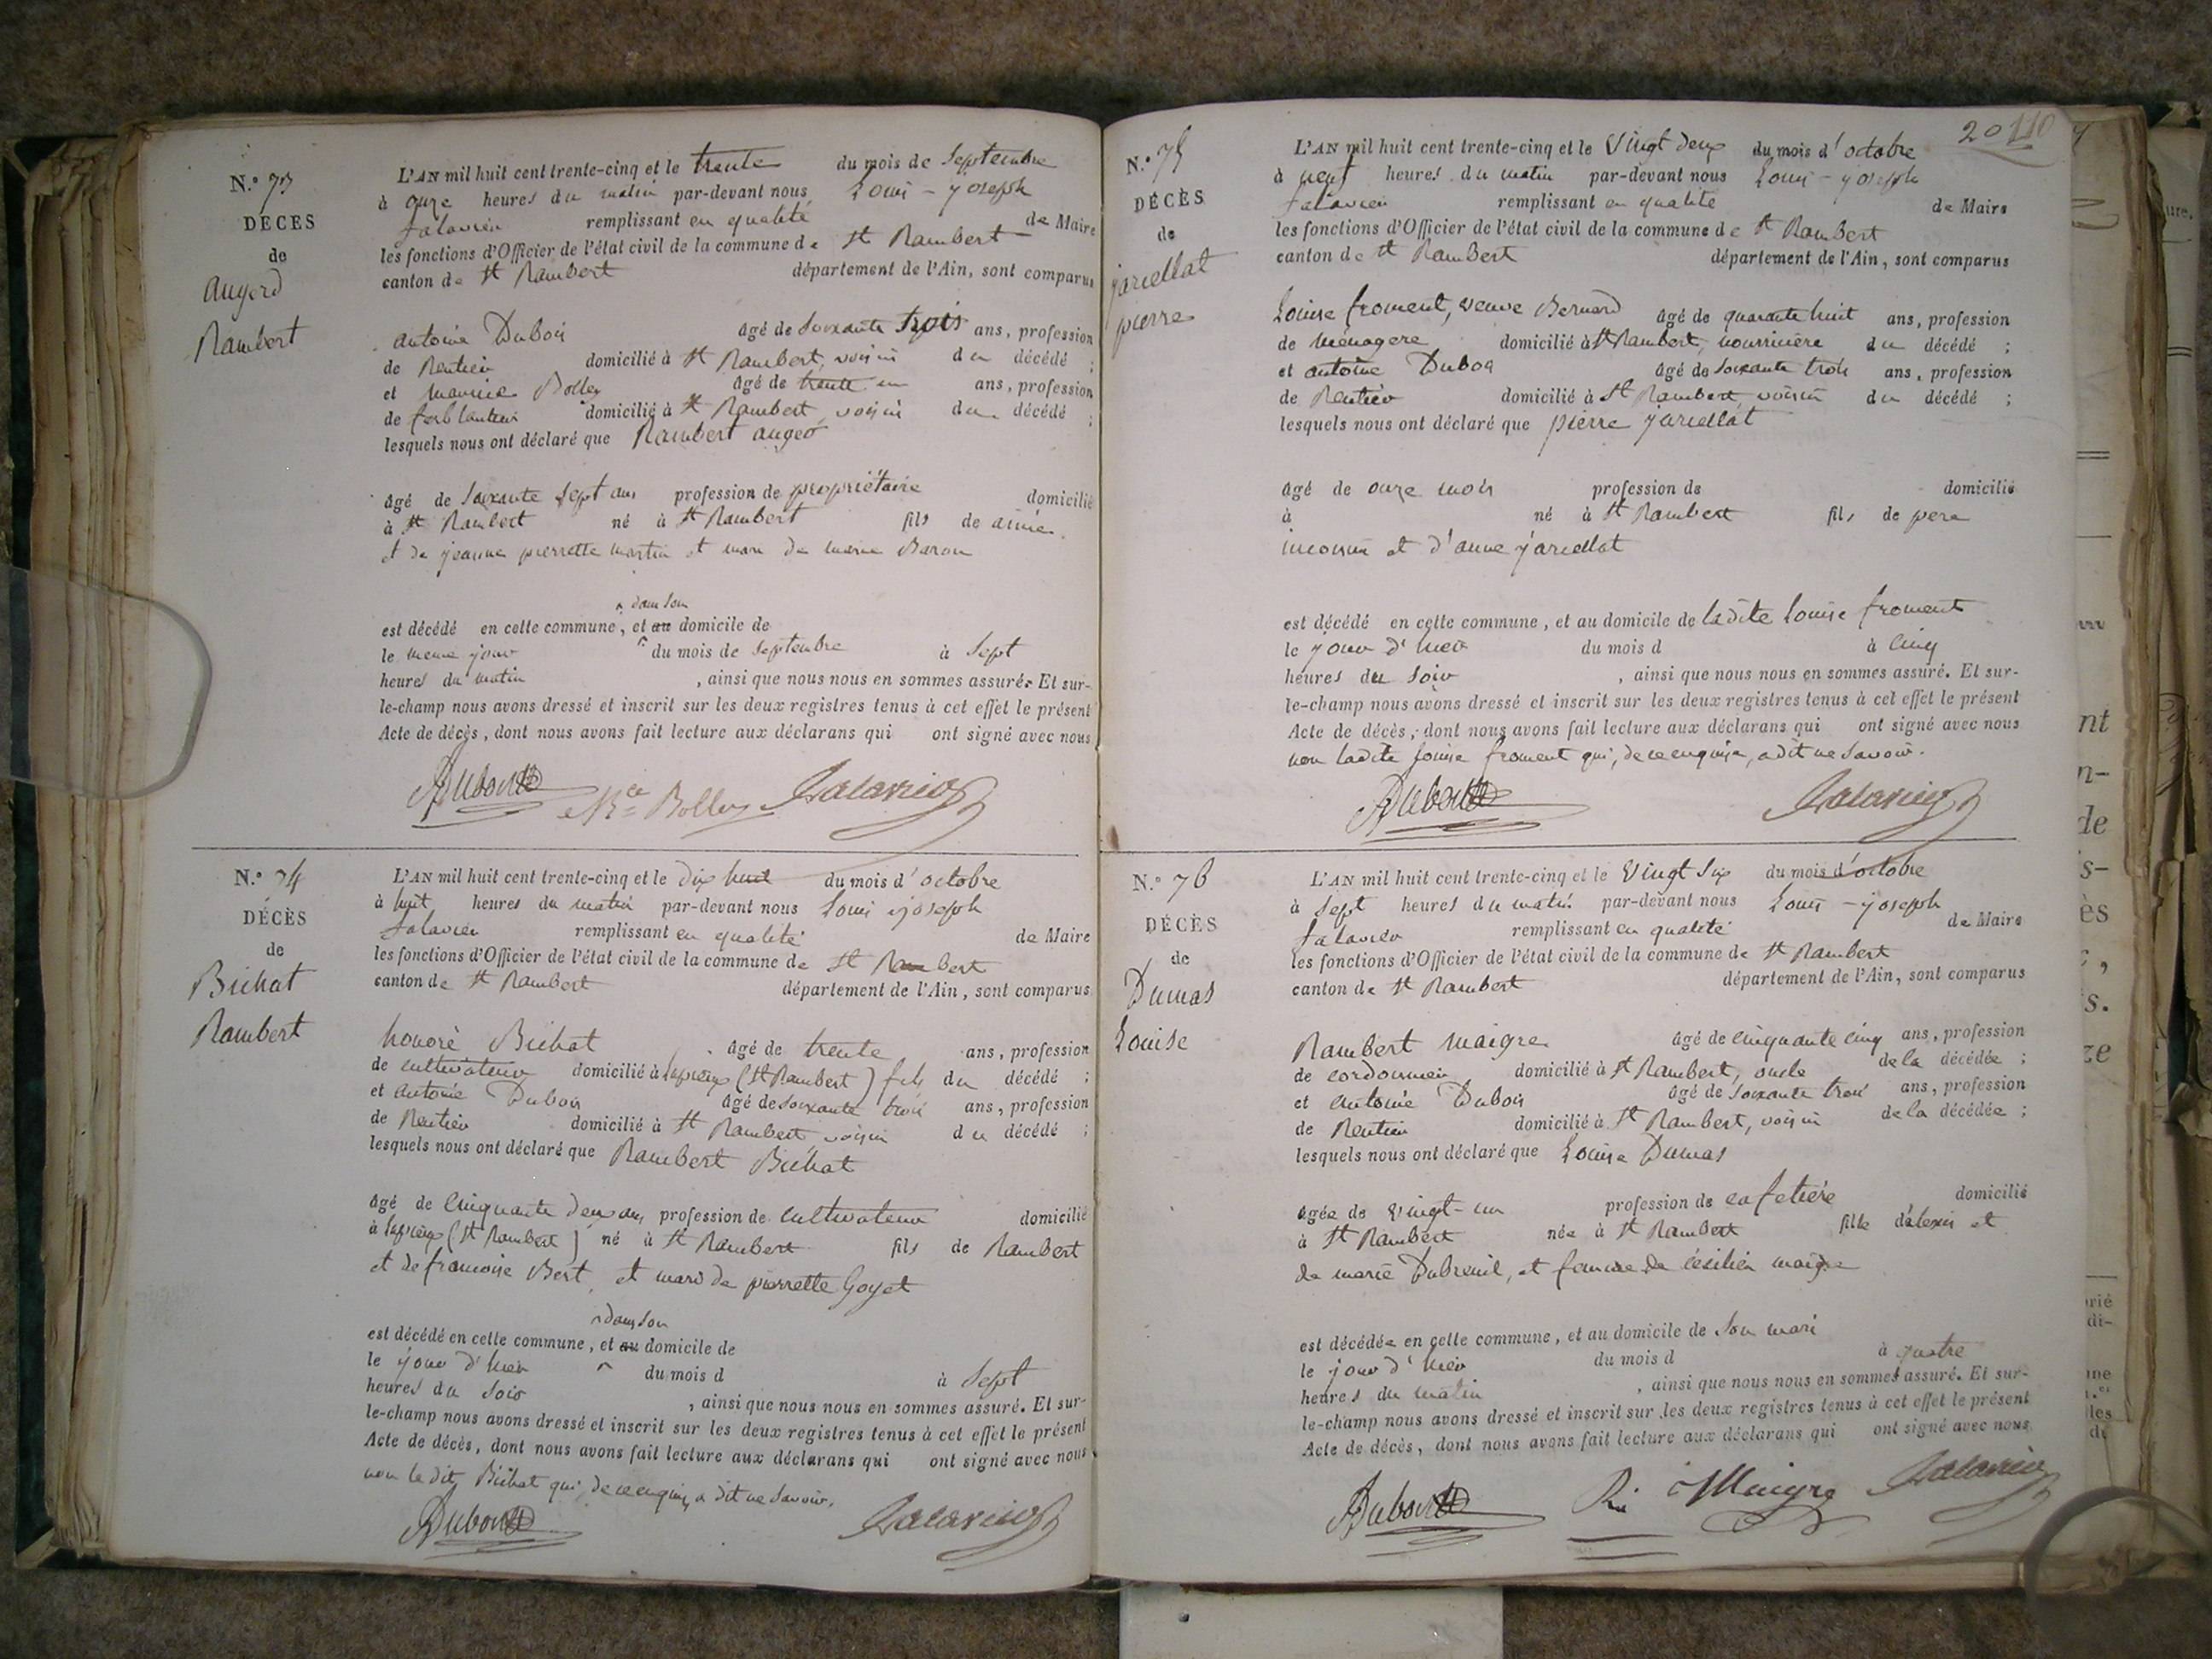 N.° 73
DÉCÈS
de
Augerd
Rambert
L'AN mil huit cent trente-cinq et le trente du mois de Septembre
à onze heures du matin par-devant nous Louis-Joseph
falavier remplissant en qualité de Maire
les fonctions d'Officier de l'état civil de la commune de St Rambert
canton de St Rambert département de l'Ain, sont comparus
antoine Dubois âgé de Soixante trois ans, profession
de Rentier domicilié à St Rambert, voisin du décédé ;
et maurice Bolley âgé de trente un ans, profession
de ferblantier domicilié à St Rambert, voisin du décédé ;
lesquels nous ont déclaré que Rambert auger
âgé de Soixante sept ans profession de propriétaire domicilié
à St Rambert né à St Rambert fils de aimé
et de jeanne pierrette martin et mari de marie Baron
dans son
est décédé en cette commune, et au domicile de
le meme jour du mois de septembre à Sept
heures du matin , ainsi que nous nous en sommes assuré. Et sur-
le-champ nous avons dressé et inscrit sur les deux registres tenus à cet effet le présent
Acte de décès, dont nous avons fait lecture aux déclarans qui ont signé avec nous
ADubois Mce Bolley
N.° 74
DÉCÈS
de
Bichat
Rambert
L'AN mil huit cent trente-cinq et le dix huit du mois d'octobre
à huit heures du matin par-devant nous Louis joseph
falavier remplissant en qualité de Maire
les fonctions d'Officier de l'état civil de la commune de St Rambert
canton de St Rambert département de l'Ain, sont comparus
honoré Bichat âgé de trente ans, profession
de cultivateur domicilié à (St Rambert) fils du décédé ;
et antoine Dubois âgé de soixante trois ans, profession
de Rentier domicilié à St Rambert voisin du décédé ;
lesquels nous ont déclaré que Rambert Bichat
âgé de cinquante deux ans profession de cultivateur domicilié
à (St Rambert) né à St Rambert fils de Rambert
et de francoise Bert, et mari de pierrette Goyet
dans son
est décédé en cette commune, et au domicile de
le jour d'hier du mois d à Sept
heures du Soir , ainsi que nous nous en sommes assuré. Et sur-
le-champ nous avons dressé et inscrit sur les deux registres tenus à cet effet le présent
Acte de décès, dont nous avons fait lecture aux déclarans qui ont signé avec nous
non ledit Bichat qui, de ce enquis, a dit ne Savoir.
ADubois
20 110
N.° 75
DÉCÈS
de
jarcellat
pierre
L'AN mil huit cent trente-cinq et le Vingt deux du mois d'octobre
à neuf heures du matin par-devant nous Louis-joseph
falavier remplissant en qualité de Maire
les fonctions d'Officier de l'état civil de la commune de St Rambert
canton de St Rambert département de l'Ain, sont comparus
Louise froment, veuve Bernard âgé de quarante huit ans, profession
de ménagere domicilié à St Rambert, nourricière du décédé ;
et antoine Dubois âgé de Soixante trois ans, profession
de Rentier domicilié à St Rambert, voisin du décédé ;
lesquels nous ont déclaré que pierre jarcellat
âgé de onze mois profession de domicilié
à né à St Rambert fils de pere
inconnu et d'anne jarcellat
est décédé en cette commune, et au domicile de ladite Louise froment
le jour d'hier du mois d à cinq
heures du soir , ainsi que nous nous en sommes assuré. Et sur-
le-champ nous avons dressé et inscrit sur les deux registres tenus à cet effet le présent
Acte de décès, dont nous avons fait lecture aux déclarans qui ont signé avec nous
non ladite Louise froment qui, de ce enquise, a dit ne Savoir.
ADubois
N.° 76
DÉCÈS
de
Dumas
Louise
L'AN mil huit cent trente-cinq et le Vingt Six du mois d'octobre
à Sept heures du matin par-devant nous Louis-joseph
falavier remplissant en qualité de Maire
les fonctions d'Officier de l'état civil de la commune de St Rambert
canton de St Rambert département de l'Ain, sont comparus
Rambert maigre âgé de cinquante cinq ans, profession
de cordonnier domicilié à St Rambert, oncle de la décédée ;
et antoine Dubois âgé de Soixante trois ans, profession
de Rentier domicilié à St Rambert, voisin de la décédée ;
lesquels nous ont déclaré que Louise Dumas
âgée de Vingt-un profession de cafetière domicilié
à St Rambert née à St Rambert fille d'alexis et
de marie Dubreuil, et femme de césilien maigre
est décédée en cette commune, et au domicile de Son mari
le jour d'hier du mois d à quatre
heures du matin , ainsi que nous nous en sommes assuré. Et sur-
le-champ nous avons dressé et inscrit sur les deux registres tenus à cet effet le présent
Acte de décès, dont nous avons fait lecture aux déclarans qui ont signé avec nous
ADubois Maigre